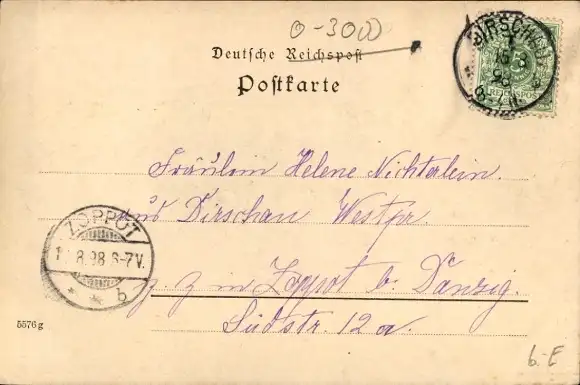 0-3000
Deutsche Reichspost
Postkarte
DIRSCHAU
REICHSPOST
Fräulein Helene Nichterlein
aus Dirschau Westpr.
ZOPPOT
8.98 6-7V.
* * b
z. Z. in Zoppot b. Danzig.
Südstr. 12a.
5576g
6.-E